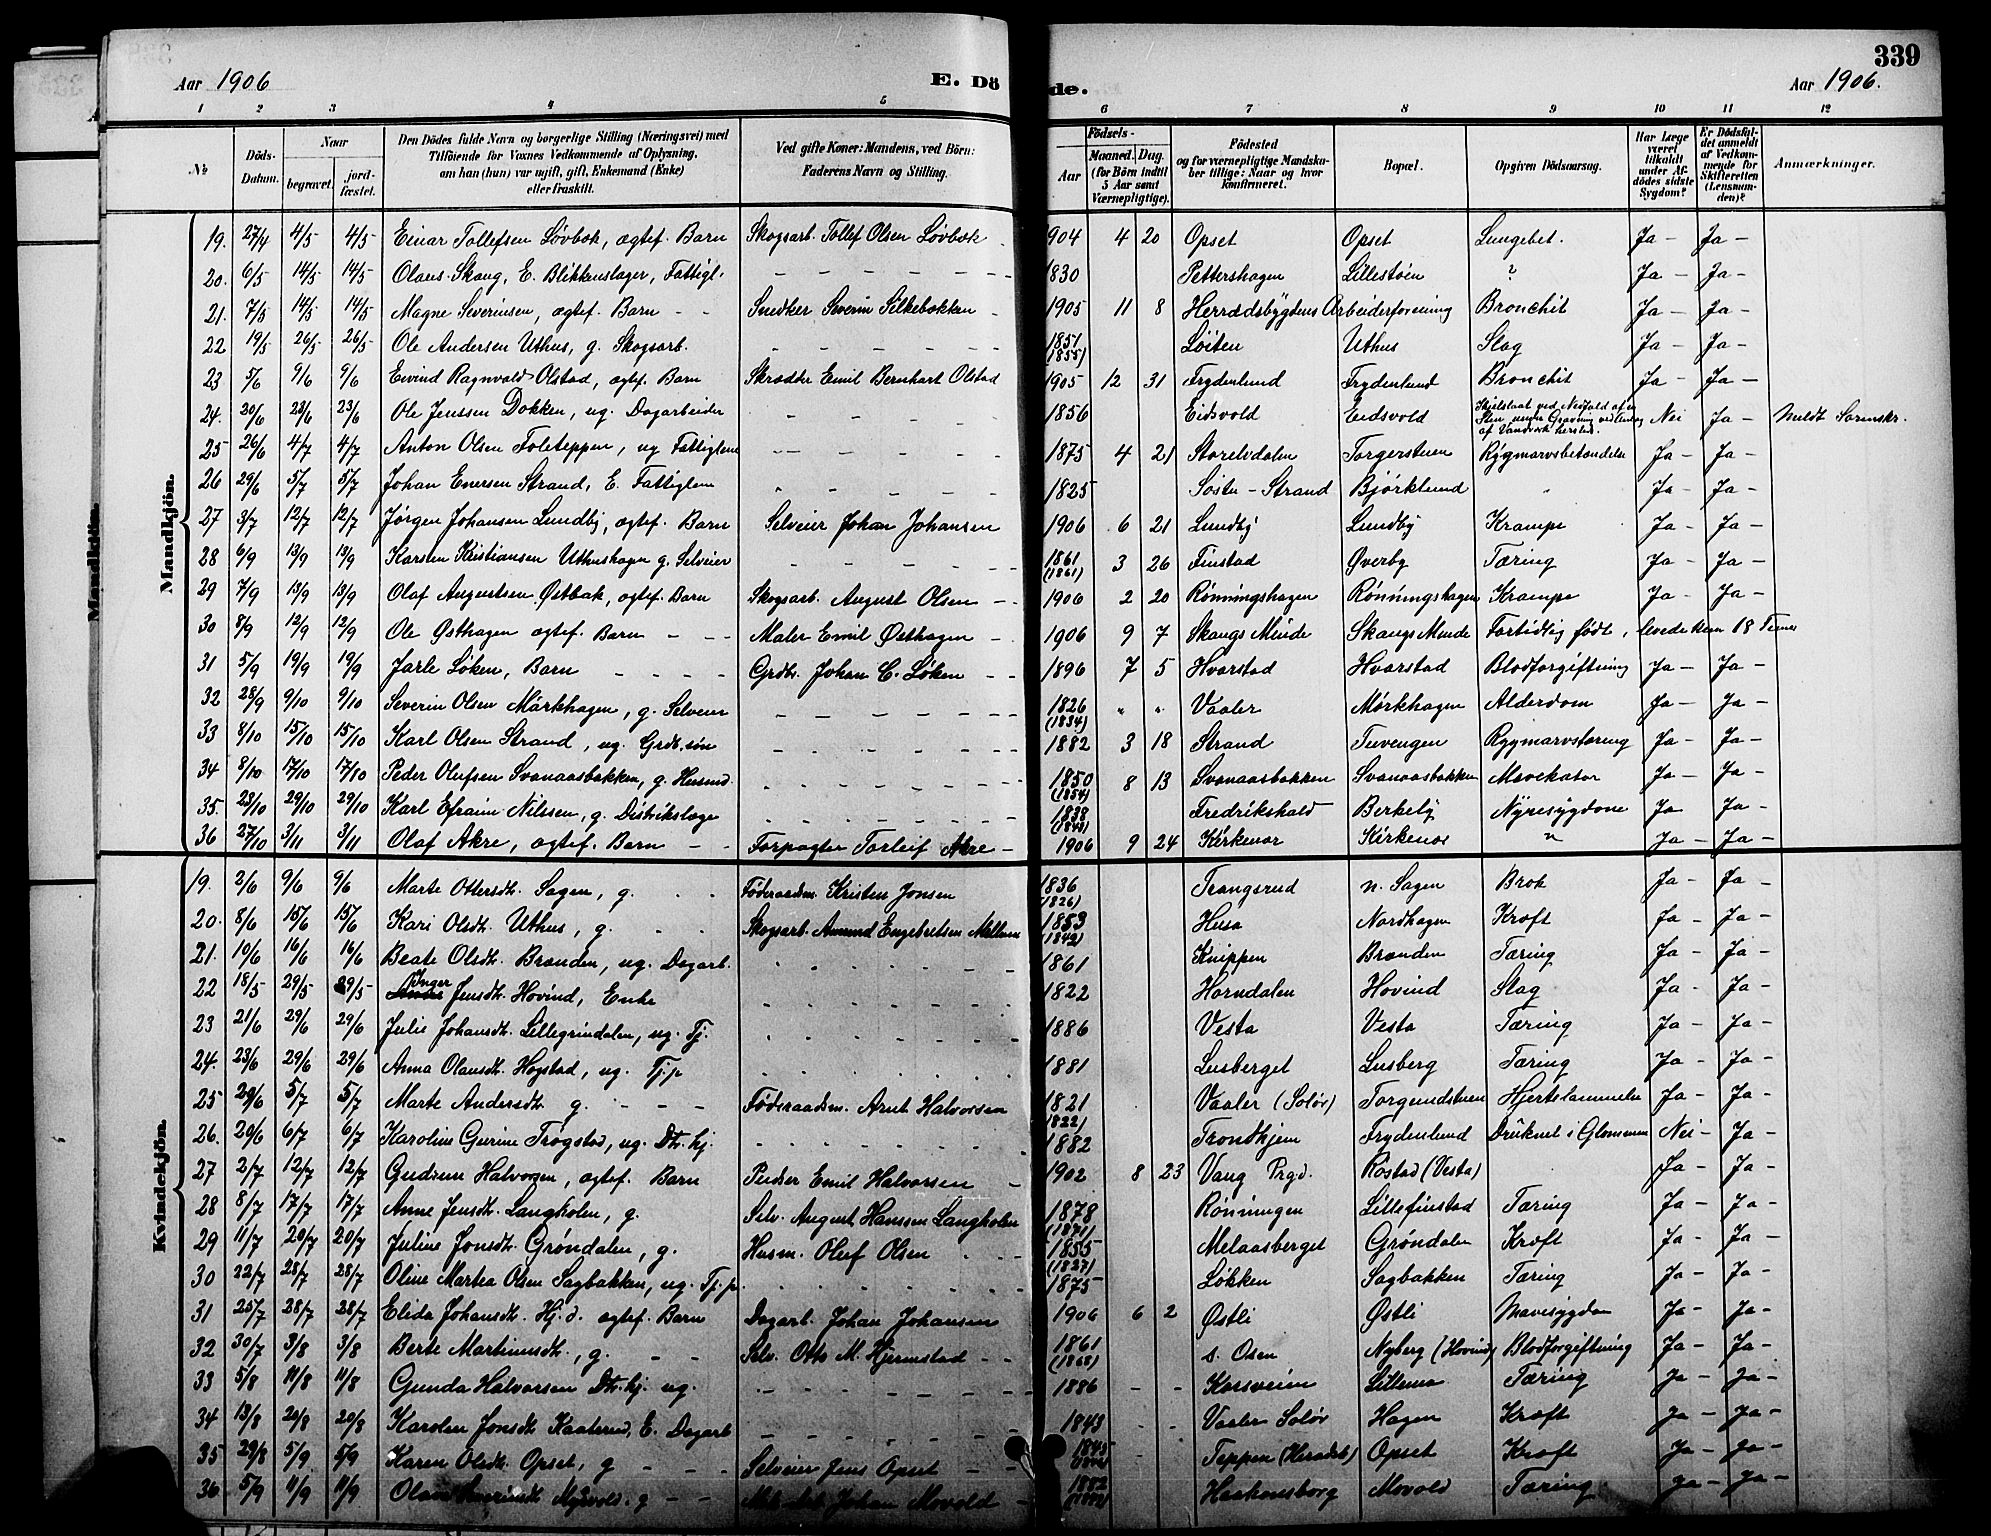 339
Aar 1906
E. Dö
de.
Aar 1906.
1 2 3 4 5 6 7 8 9 10 11 12
№
Döds-Datum.
Naar
begravet.
jord-fæstet.
Den Dödes fulde Navn og borgerlige Stilling (Næringsvei) med
Tilföiende for Voxnes Vedkommende af Oplysning,
om han (hun) var ugift, gift, Enkemand (Enke)
eller fraskilt.
Ved gifte Koner: Mandens, ved Börn:
Faderens Navn og Stilling.
Födsels-
Aar
Maaned. Dag.
(for Börn indtil
5 Aar samt
Værnepligtige).
Födested
og for værnepligtige Mandska-
ber tillige: Naar og hvor
konfirmeret.
Bopæl.
Opgiven Dödsaarsag.
Har Læge
været
tilkaldt
under Af-
dödes sidste
Sygdom?
Er Dödsfal-
det anmeldt
af Vedkom-
mende for
Skifteretten
(Lensman-
den)?
Anmærkninger.
Mandkjön.
19. 27/4 4/5 4/5 Einar Tollefsen Løvbæk, ægtef. Barn Skogsarb. Tollef Olsen Løvbæk 1904 4 20 Opset Opset Lungebet. Ja - Ja -
20. 6/5 14/5 14/5 Olaus Skaug, E. Blikkenslager, Fattigl. 1830 Pettershagen Lillestøen ? Ja - Ja -
21. 7/5 14/5 14/5 Magne Severinsen, ægtef. Barn Snedker Severin Silkebækken 1905 11 8 Herradsbygdens Arbeiderforening Bronchit Ja - Ja -
22 19/5 26/5 26/5 Ole Andersen Uthus, g. Skogsarb. 1851 (1855) Løiten Uthus Slag Ja - Ja -
23 5/6 9/6 9/6 Eivind Ragnvald Olstad, ægtef. Barn Skrædder Emil Bernhart Olstad 1905 12 31 Frydenlund Frydenlund Bronchit Ja - Ja -
24. 20/6 23/6 23/6 Ole Jenssen Dokken, ug. Dagarbeider 1856 Eidsvold Eidsvold ved Nedfald af en Sten under Gravning af Vandværk Nei Ja - Meldt Sorenskr.
25 26/6 4/7 4/7 Anton Olsen Foleteppen, ug Fattiglem 1875 4 21 Storelvdalen Torgerstuen Rygmarvsbetændelse Ja - Ja -
26 29/6 5/7 5/7 Johan Enersen Strand, E. Fattiglem 1825 Strand Bjørklund " Ja - Ja -
27 3/7 12/7 12/7 Jørgen Johansen Lundby, ægtef. Barn Selveier Johan Johansen 1906 6 21 Lundby Lundby Krampe Ja - Ja -
28 6/9 13/9 13/9 Karsten Kristiansen Uthushagen g. Selveier 1861 (1861) 3 26 Finstad Øverby Tæring Ja - Ja -
29 7/9 13/9 13/9 Olaf Augustsen Østbæk, ægtef. Barn Skogsarb. August Olsen 1906 2 20 Rønningshagen Rønningshagen Krampe Ja - Ja -
30 8/9 12/9 12/9 Ole Østhagen ægtef. Barn Maler Emil Østhagen 1906 9 7 Skaugs Minde Skaugs Minde Fortidlig født, levede kun 18 Timer
31 5/9 19/9 19/9 Jarle Løken, Barn Grdbr. Johan C. Løken 1896 7 5 Hvarstad Hvarstad Blodforgiftning Ja - Ja -
32 28/9 9/10 9/10 Severin Olsen Mørkhagen, g. Selveier 1826 (1834) " " Vaaler Mørkhagen Alderdom Ja - Ja -
33 8/10 15/10 15/10 Karl Olsen Strand, ug. Grdb. søn 1882 3 18 Strand Tuvengen Rygmarvstæring Ja - Ja -
34 8/10 17/10 17/10 Peder Olufsen Svenaasbakken, g. Husmd. 1850 (1854) 8 13 Svenaasbakken Svenaasbakken Mavekatar Ja - Ja -
35. 23/10 29/10 29/10 Karl Efraim Nilssen, g. Distrikslæge 1838 Fredrikshald Berkely Nyresygdone Ja Ja -
36 27/10 3/11 3/11 Olaf Akre, ægtef. Barn Forpagter Torleif Akre 1906 9 24 Kirkenær Kirkenær " Ja - Ja -
Kvindekjön.
19. 2/6 9/6 9/6 Marte Ottersdt. Sagen, g. Føderaadsm. Kristen Jonsen 1836 (1826) Trangsrud n. Sagen Brok Ja - Ja -
20. 8/6 15/6 15/6 Kari Olsdt. Uthus, g. Skogsarb. Amund Engebretsen 1853 (1842) Husa Nordhagen Kræft Ja - Ja -
21. 19/6 16/6 16/6 Beate Olsdt. Brænden, ug. Dagarb. 1861 Knippen Brænden Tæring Ja - Ja -
22 18/5 29/5 29/5 Inger Jensdt. Hovind, Enke 1822 Horndalen Hovind Slag Ja - Ja -
23 21/6 29/6 29/6 Julie Johansdt. Lillegrindalen, ug. Tj. 1886 Vesta Vesta Tæring Ja - Ja -
24. 23/6 29/6 29/6 Anna Olausdt. Høgstad, ug. Tj. p 1881 Lusberget Lusberg Tæring Ja - Ja -
25 29/6 5/7 5/7 Marte Andersdt. g. Føderaadsm. Arnt Halvorsen 1821 (1822) Vaaler (Solør) Torgundstuen Hjertelammelse Ja - Ja -
26. 20/6 6/7 6/7 Karoline Gurine Trøgstad, ug. Dtr. hj. 1882 Trondhjem Frydenlund Druknet i Glommen Nei - Ja -
27 2/7 12/7 12/7 Gudrun Halvorsen, ægtef. Barn Pudser Emil Halvorsen 1902 8 23 Vang Prgd. Rostad (Vesta) Ja - Ja -
28 8/7 17/7 17/7 Anne Jensdt. Langholen, g. Selv. August Hanssen Langholen 1878 (1871) Rønningen Lillefinstad Tæring Ja - Ja -
29 11/7 20/7 20/7 Juline Jonsdt. Grøndalen, g. Husm. Oluf Olsen 1855 (1827) Melaasberget Grøndalen Kræft Ja - Ja -
30 22/7 28/7 28/7 Oline Martea Olsen Sagbakken, ug. Tj. p. 1875 Løkken Sagbakken Tæring Ja - Ja -
31 25/7 28/7 28/7 Elida Johansdt. Hj. d. ægtef. Barn Dagarb. Johan Johansen 1906 6 2 Østli Østli Mavesygdom Ja - Ja -
32 30/7 3/8 3/8 Berte Martinusdt., g. Selv. Otto M. Hjermstad 1861 (1868) s. Osen Nyberg (Hovind) Blodforgiftning Ja - Ja -
33 5/8 11/8 11/8 Gunda Halvorsen Dtr. hj. ug. 1886 Korsveien Lillemo Tæring Ja - Ja -
34 13/8 20/8 20/8 Karolen Jonsdt. Kaaterud, E. Dagarb 1843 Vaaler Solør Hagen Kræft Ja - Ja -
35 29/8 5/9 5/9 Karen Olsdt. Opset, g Selveier Jens Opset 1845 Teppen (Heradsb) Opset Kræft Ja - Ja -
36 5/9 11/9 11/9 g Johan Movold 1882 Haakonsborg Movold Tæring Ja - Ja -